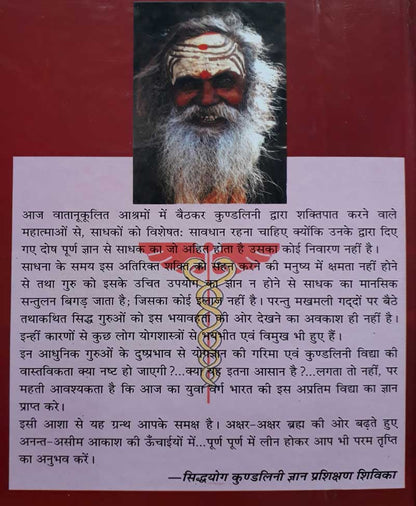 आज वातानूकूलित आश्रमों में बैठकर कुण्डलिनी द्वारा शक्तिपात करने वाले
महात्माओं से, साधकों को विशेषतः सावधान रहना चाहिए क्योंकि उनके द्वारा दिए
गए दोष पूर्ण ज्ञान से साधक का जो अहित होता है उसका कोई निवारण नहीं है।
साधना के समय इस अतिरिक्त शक्ति को सहन करने की मनुष्य में क्षमता नहीं होने
से तथा गुरु को इसके उचित उपयोग का ज्ञान न होने से साधक का मानसिक
सन्तुलन बिगड़ जाता है; जिसका कोई इलाज नहीं है। परन्तु मखमली गद्दों पर बैठे
तथाकथित सिद्ध गुरुओं को इस भयावहता की ओर देखने का अवकाश ही नहीं है।
इन्हीं कारणों से कुछ लोग योगशास्त्रों से भयभीत एवं विमुख भी हुए हैं।
इन आधुनिक गुरुओं के दुष्प्रभाव से योगज्ञान की गरिमा एवं कुण्डलिनी विद्या की
वास्तविकता क्या नष्ट हो जाएगी ?...क्या यह इतना आसान है ?...लगता तो नहीं, पर
महती आवश्यकता है कि आज का युवा वर्ग भारत की इस अप्रतिम विद्या का ज्ञान
प्राप्त करे।
इसी आशा से यह ग्रन्थ आपके समक्ष है। अक्षर-अक्षर ब्रह्म की ओर बढ़ते हुए
अनन्त-असीम आकाश की ऊँचाईयों में...पूर्ण पूर्ण में लीन होकर आप भी परम तृप्ति
का अनुभव करें।
—सिद्धयोग कुण्डलिनी ज्ञान प्रशिक्षण शिविका